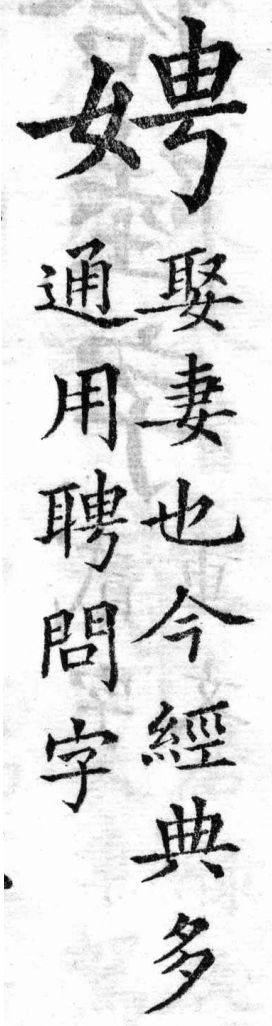 娉
娶妻也今經典多
通用聘問字